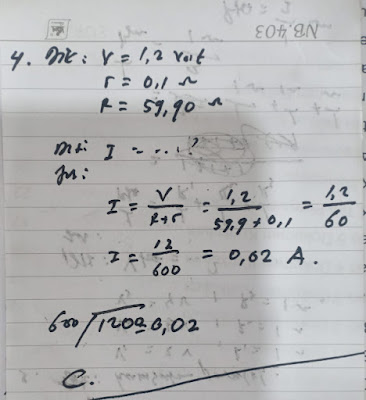 NB.403
4. Dit : V = 1,2 volt
r = 0,1 Ω
R = 59,90 Ω
Dit: I = ....?
Jw:
I = V/R+r = 1,2/59,9+0,1 = 1,2/60
I = 12/600 = 0,02 A.
600 / 1200 0,02
C.